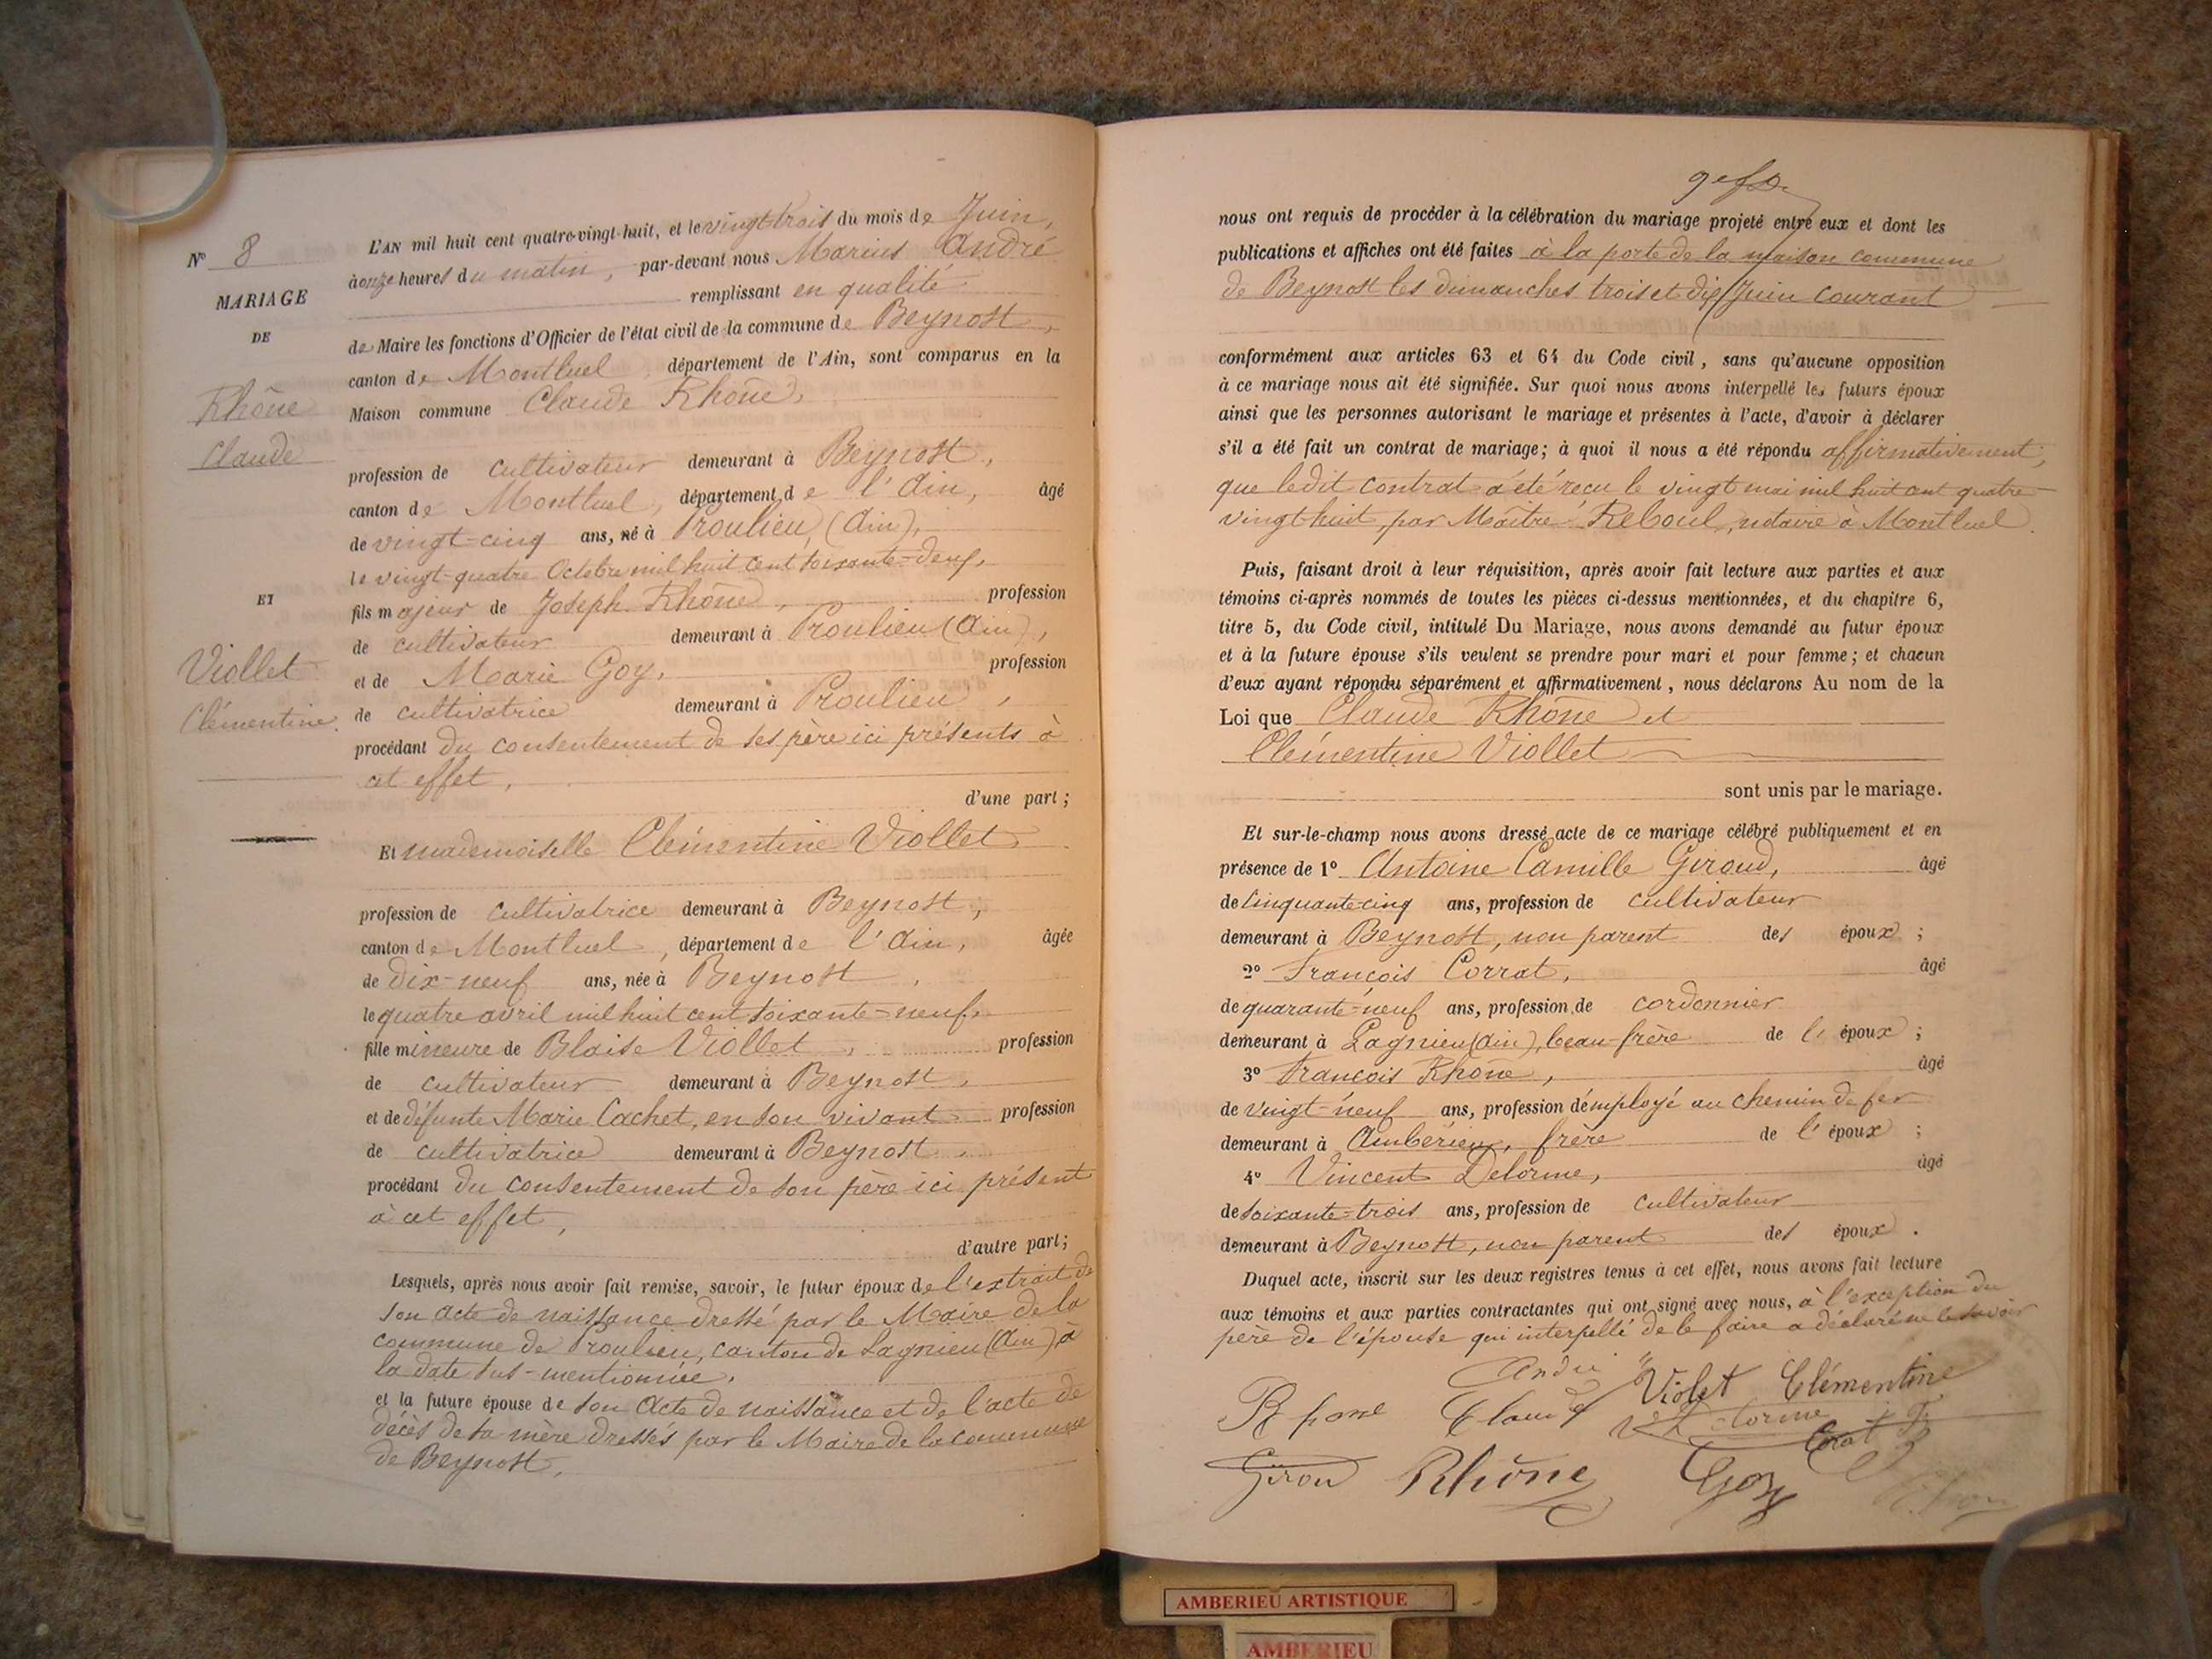 N° 8
MARIAGE
DE
Rhône
Claude
ET
Viollet
Clémentine
L'AN mil huit cent quatre-vingt-huit, et le vingt trois du mois de Juin,
à onze heures du matin, par-devant nous Marius André
remplissant en qualité
de Maire les fonctions d'Officier de l'état civil de la commune de Beynost,
canton de Montluel, département de l'Ain, sont comparus en la
Maison commune Claude Rhône,
profession de cultivateur demeurant à Beynost,
canton de Montluel, département de l'Ain, âgé
de vingt-cinq ans, né à Proulieu, (Ain),
le vingt-quatre Octobre mil huit cent soixante-deux,
fils majeur de Joseph Rhône, profession
de cultivateur demeurant à Proulieu (Ain),
et de Marie Goy, profession
de cultivatrice demeurant à Proulieu,
procédant du consentement de ses père ici présents à
cet effet,
d'une part;
Et mademoiselle Clémentine Viollet
profession de cultivatrice demeurant à Beynost,
canton de Montluel, département de l'Ain, âgée
de dix-neuf ans, née à Beynost,
le quatre avril mil huit cent soixante-neuf,
fille mineure de Blaise Viollet, profession
de cultivateur demeurant à Beynost,
et de défunte Marie Cachet, en son vivant profession
de cultivatrice demeurant à Beynost
procédant du consentement de son père ici présent
à cet effet,
d'autre part;
Lesquels, après nous avoir fait remise, savoir, le futur époux de l'extrait de
son acte de naissance dressé par le Maire de la
commune de Proulieu, canton de Lagnieu (Ain), à
la date sus-mentionnée,
et la future épouse de son acte de naissance et de l'acte de
décès de sa mère dressés par le Maire de la commune
de Beynost,
nous ont requis de procéder à la célébration du mariage projeté entre eux et dont les
publications et affiches ont été faites à la porte de la maison commune
de Beynost les dimanches trois et dix Juin courant
conformément aux articles 63 et 64 du Code civil, sans qu'aucune opposition
à ce mariage nous ait été signifiée. Sur quoi nous avons interpellé les futurs époux
ainsi que les personnes autorisant le mariage et présentes à l'acte, d'avoir à déclarer
s'il a été fait un contrat de mariage; à quoi il nous a été répondu affirmativement,
que ledit contrat a été reçu le vingt mai mil huit cent quatre-
vingt huit, par Maître Reboul, notaire à Montluel.
Puis, faisant droit à leur réquisition, après avoir fait lecture aux parties et aux
témoins ci-après nommés de toutes les pièces ci-dessus mentionnées, et du chapitre 6,
titre 5, du Code civil, intitulé Du Mariage, nous avons demandé au futur époux
et à la future épouse s'ils veulent se prendre pour mari et pour femme; et chacun
d'eux ayant répondu séparément et affirmativement, nous déclarons Au nom de la
Loi que Claude Rhône et
Clémentine Viollet
sont unis par le mariage.
Et sur-le-champ nous avons dressé acte de ce mariage célébré publiquement et en
présence de 1° Antoine Camille Giroud, âgé
de cinquante-cinq ans, profession de cultivateur
demeurant à Beynost, non parent des époux;
2° François Corrat, âgé
de quarante-neuf ans, profession de cordonnier
demeurant à Lagnieu (Ain), beau-frère de l'époux;
3° François Rhône, âgé
de vingt-neuf ans, profession d'employé au chemin de fer
demeurant à Ambérieu, frère de l'époux;
4° Vincent Delorme, âgé
de soixante-trois ans, profession de cultivateur
demeurant à Beynost, non parent des époux.
Duquel acte, inscrit sur les deux registres tenus à cet effet, nous avons fait lecture
aux témoins et aux parties contractantes qui ont signé avec nous, à l'exception du
père de l'épouse qui interpellé de le faire a déclaré ne le savoir
André Violet Clémentine
Rhone Claude
Girou Rhône Goy
AMBERIEU ARTISTIQUE
AMBERIEU